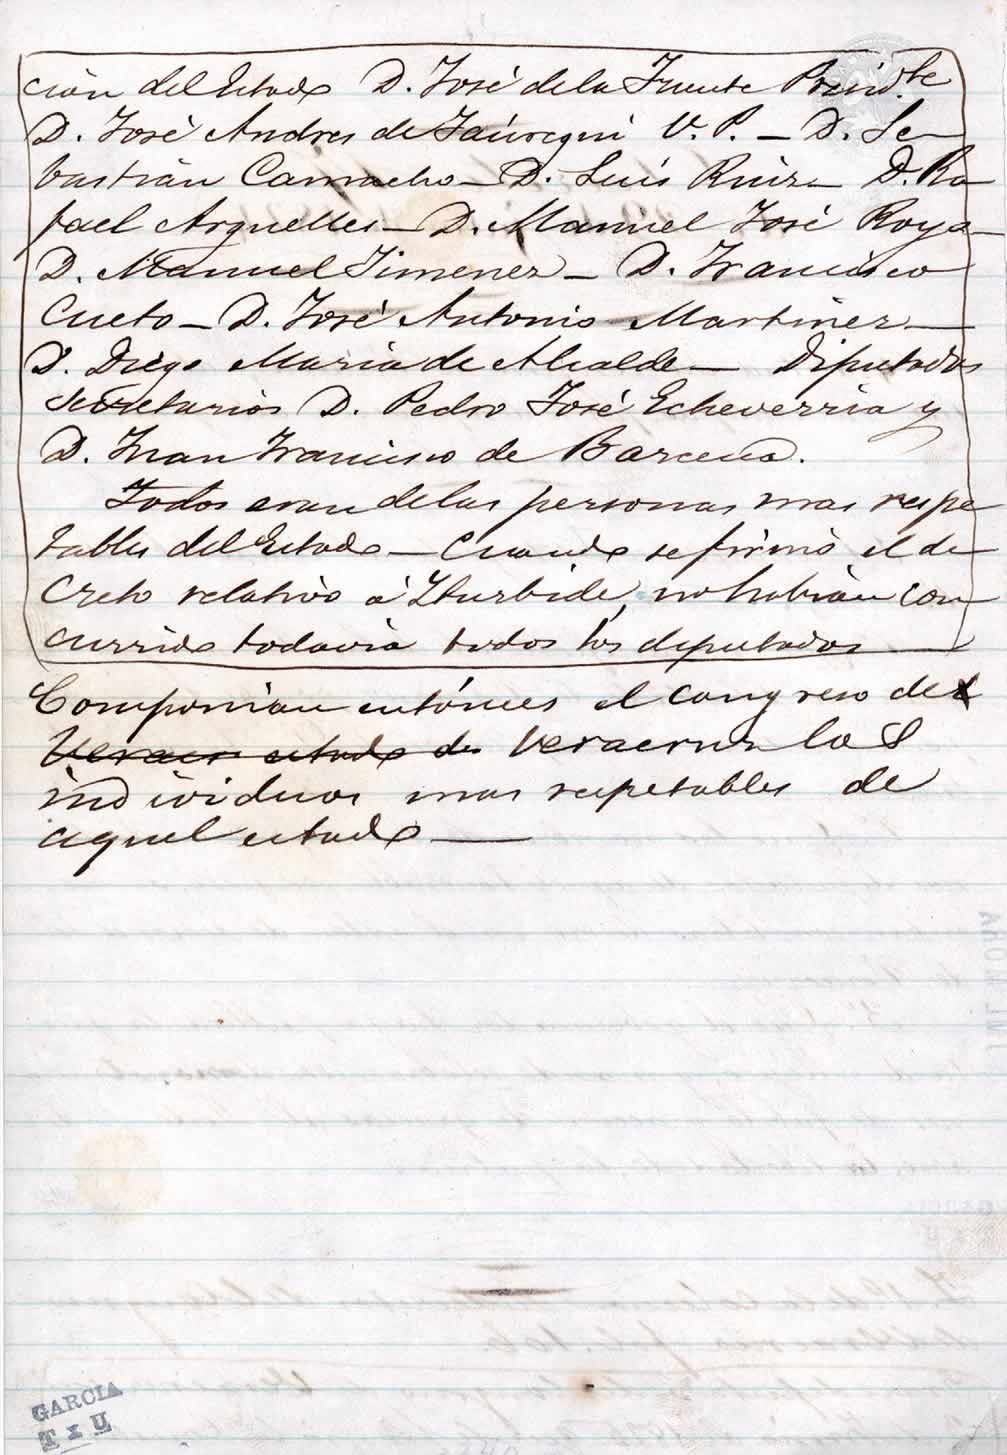 cion del Estado D. José de la Fuente Presid.te
D. José Andres de Jaúregui V. P. — D. Se-
bastián Camacho — D. Luis Ruiz — D. Ra-
fael Arguelles — D. Manuel José Royo —
D. Manuel Jimenez — D. Francisco
Cueto — D. José Antonio Martinez —
D. Diego Maria de Alcalde — Diputados
Secretarios D. Pedro José Echeverria y
D. Juan Francisco de Barcena.
Todos eran de las personas mas respe
tables del Estado — Cuando se firmó el de-
creto relativo á Iturbide, no habian con
currido todavia todos los diputados —
Componian entónces el congreso del
Veracr estado de Veracruz los
individuos mas respetables de
aquel estado —
GARCIA
T x U